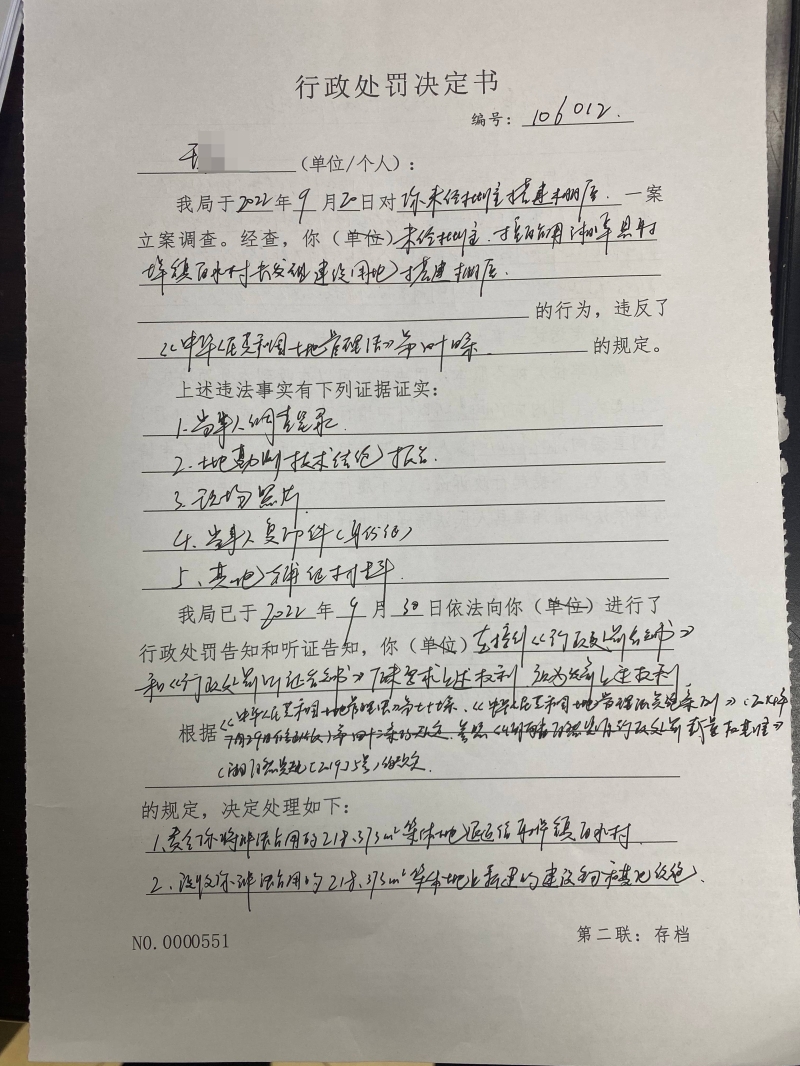 行政处罚决定书
编号：106012.
王 （单位/个人）：
我局于2022年9月20日对你未经批准搭建棚房.一案
立案调查。经查，你（单位）未经批准.擅自占用
镇百水村 组建设用地搭建棚房.
的行为，违反了
《中华人民共和国土地管理法》第四十四条. 的规定。
上述违法事实有下列证据证实：
1.当事人调查笔录.
2.土地勘测技术 报告.
3.现场照片.
4.当事人复印件(身份证)
5、其他 材料.
我局已于2022年9月30日依法向你（单位）进行了
行政处罚告知和听证告知，你（单位）在接到《行政处罚告知书》
和《行政处罚听证告知书》后未要求上述权利，视为放弃上述权利.
根据《中华人民共和国土地管理法》第七十七条、《中华人民共和国土地管理法实施条例》
的规定，决定处理如下：
1.责令你将非法占用的218.373m²集体土地退还 镇百水村.
2、没收你非法占用的218.373m²集体土地上新建的建设物和其他设施.
NO.0000551
第二联：存档